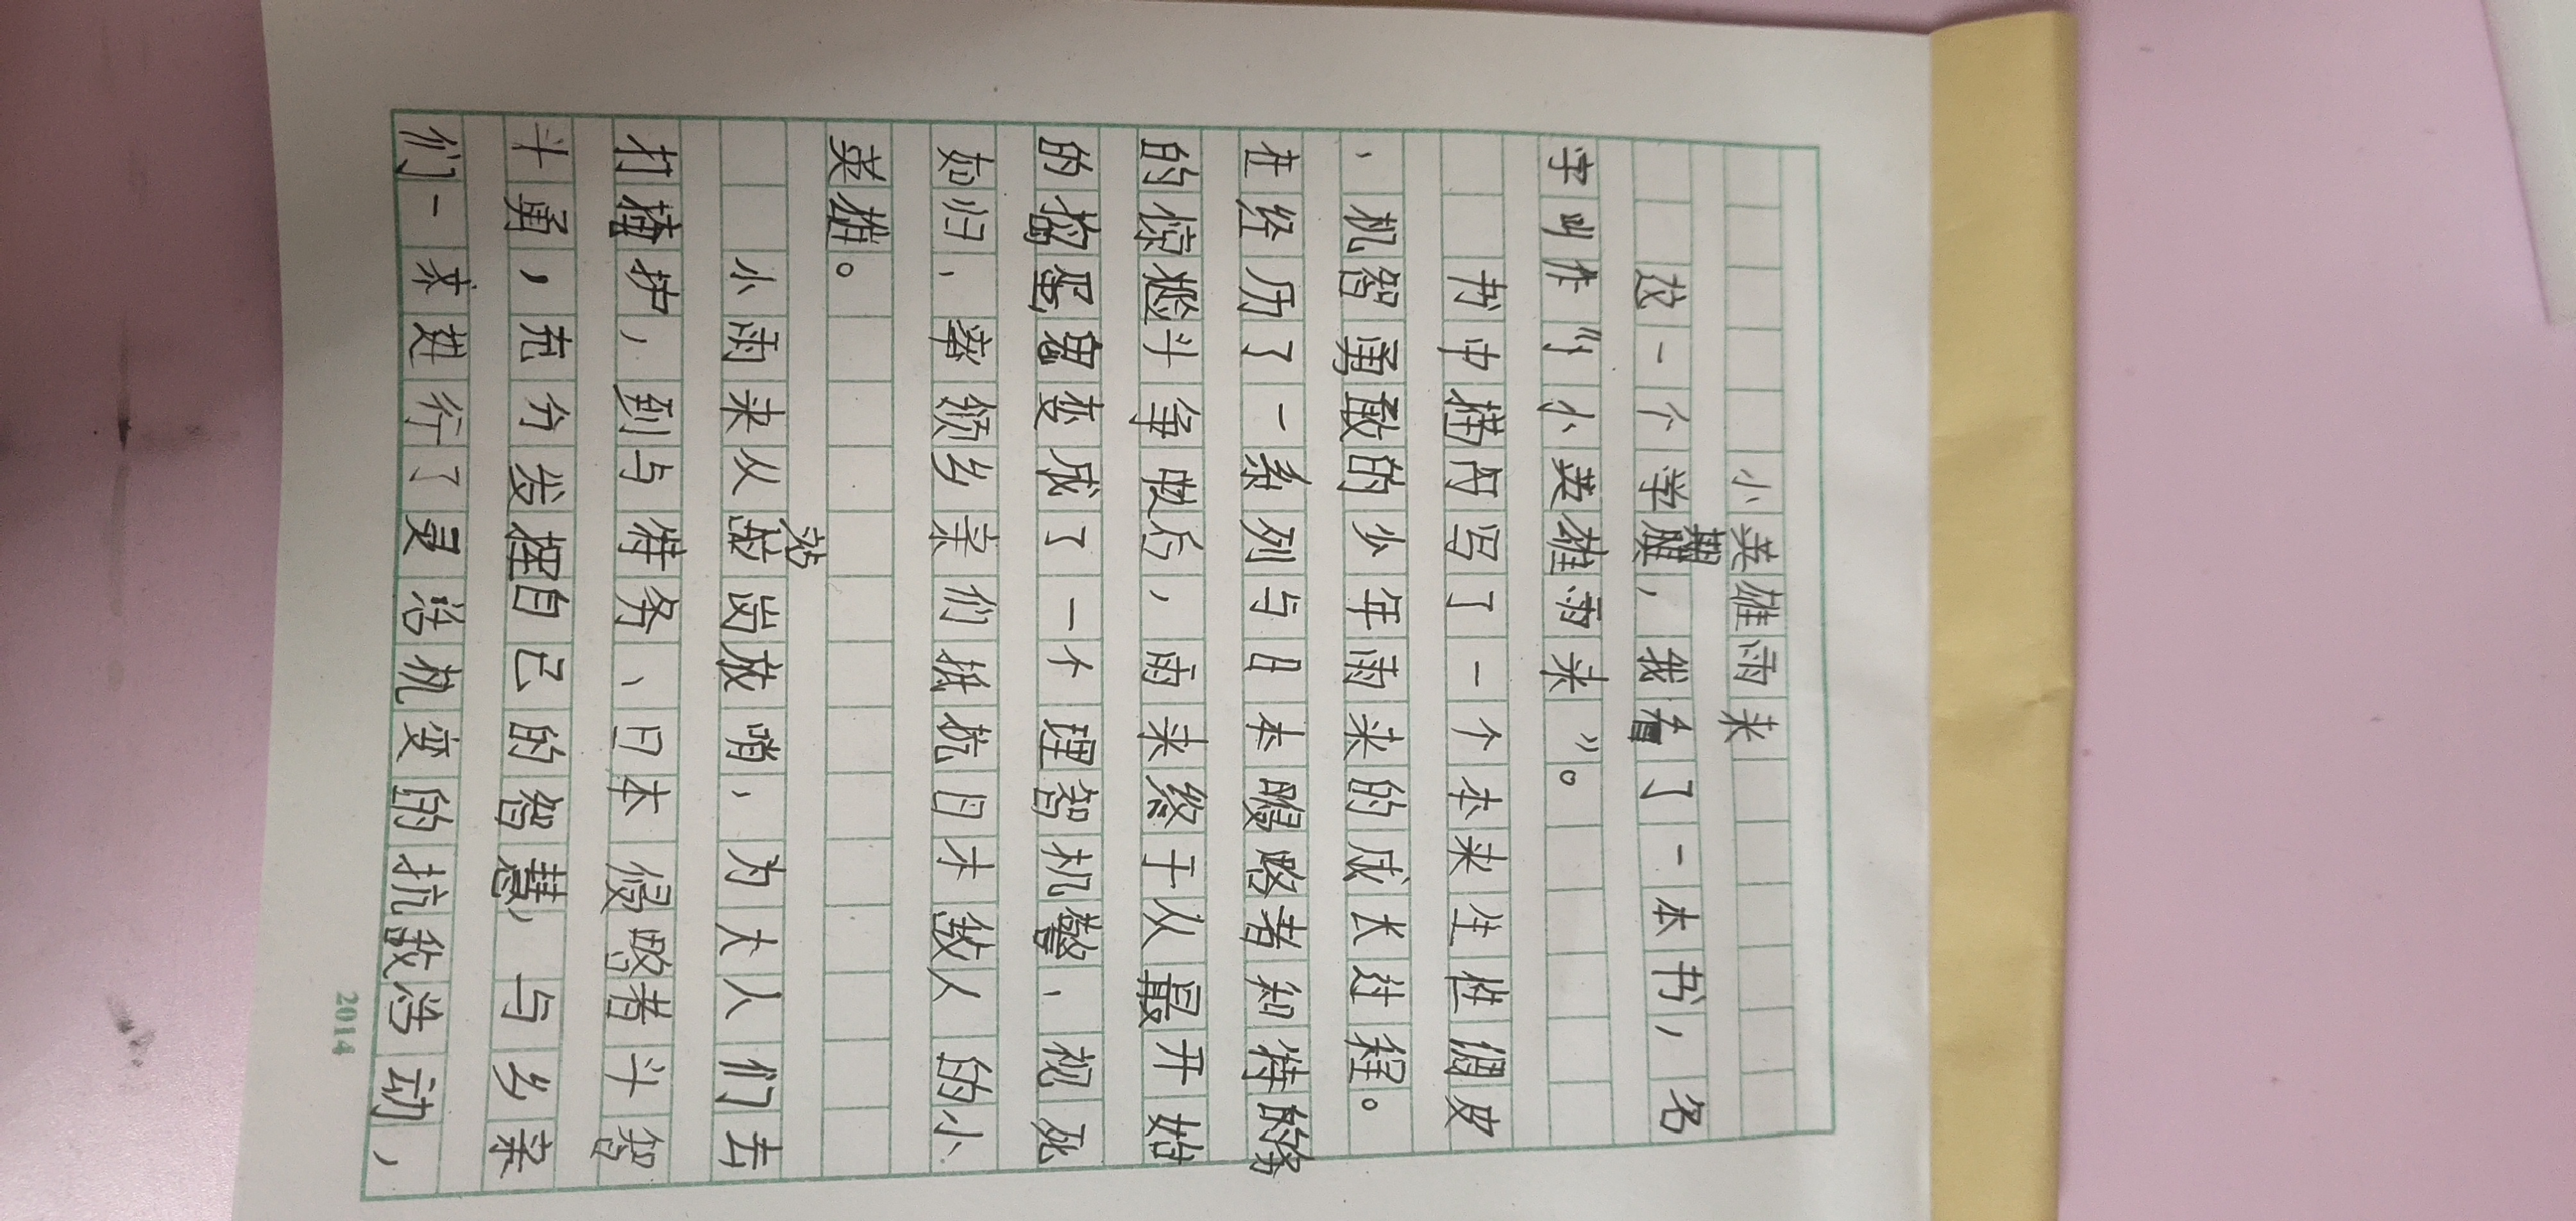 小英雄雨来
这一个学期，我看了一本书，名
字叫作“《小英雄雨来》”。
书中描写了一个本来生性倔皮
、机智勇敢的少年雨来的成长过程。
在经历了一系列与日本侵略者和特务
的惊险斗争战后，雨来终于从最开始
的捣蛋鬼变成了一个理智机警、视死
如归、率领乡亲们抵抗日本敌人的小
英雄。
小雨来从站岗放哨，为大人们去
打掩护，到与特务、日本侵略者斗智
斗勇，充分发挥自己的智慧，与乡亲
们一来进行了灵活机变的抗敌活动，
2014